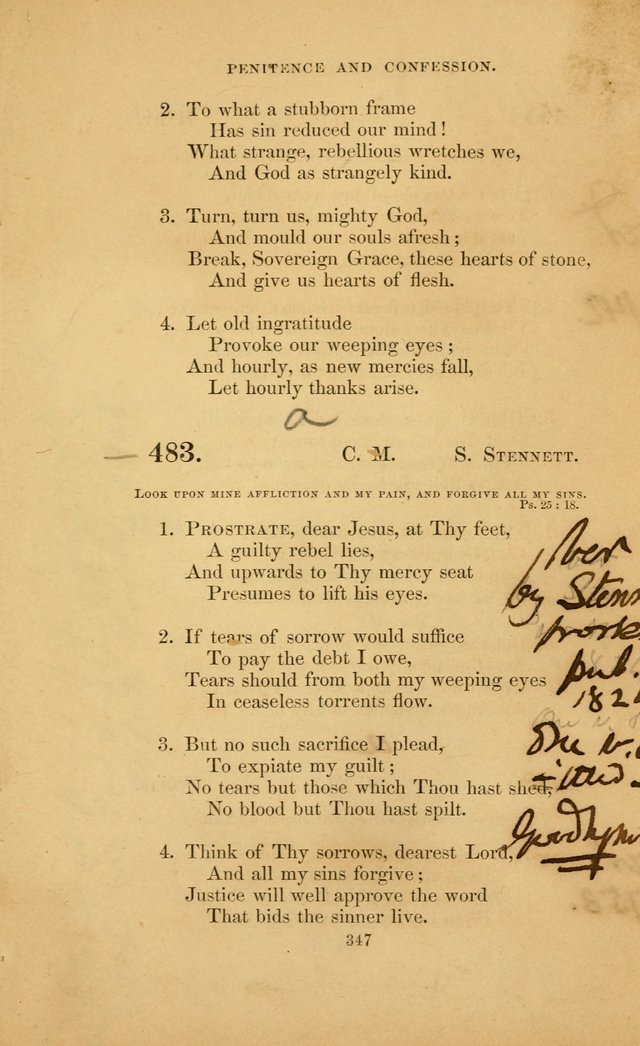 PENITENCE AND CONFESSION.
2. To what a stubborn frame
Has sin reduced our mind!
What strange, rebellious wretches we,
And God as strangely kind.
3. Turn, turn us, mighty God,
And mould our souls afresh;
Break, Sovereign Grace, these hearts of stone,
And give us hearts of flesh.
4. Let old ingratitude
Provoke our weeping eyes;
And hourly, as new mercies fall,
Let hourly thanks arise.
a
— 483. C. M. S. STENNETT.
LOOK UPON MINE AFFLICTION AND MY PAIN, AND FORGIVE ALL MY SINS.
Ps. 25 : 18.
1. PROSTRATE, dear Jesus, at Thy feet,
A guilty rebel lies,
And upwards to Thy mercy seat
Presumes to lift his eyes.
2. If tears of sorrow would suffice
To pay the debt I owe,
Tears should from both my weeping eyes
In ceaseless torrents flow.
3. But no such sacrifice I plead,
To expiate my guilt;
No tears but those which Thou hast shed,
No blood but Thou hast spilt.
4. Think of Thy sorrows, dearest Lord,
And all my sins forgive;
Justice will well approve the word
That bids the sinner live.
347
by Stenn
pub.
182
One v.
Good hym